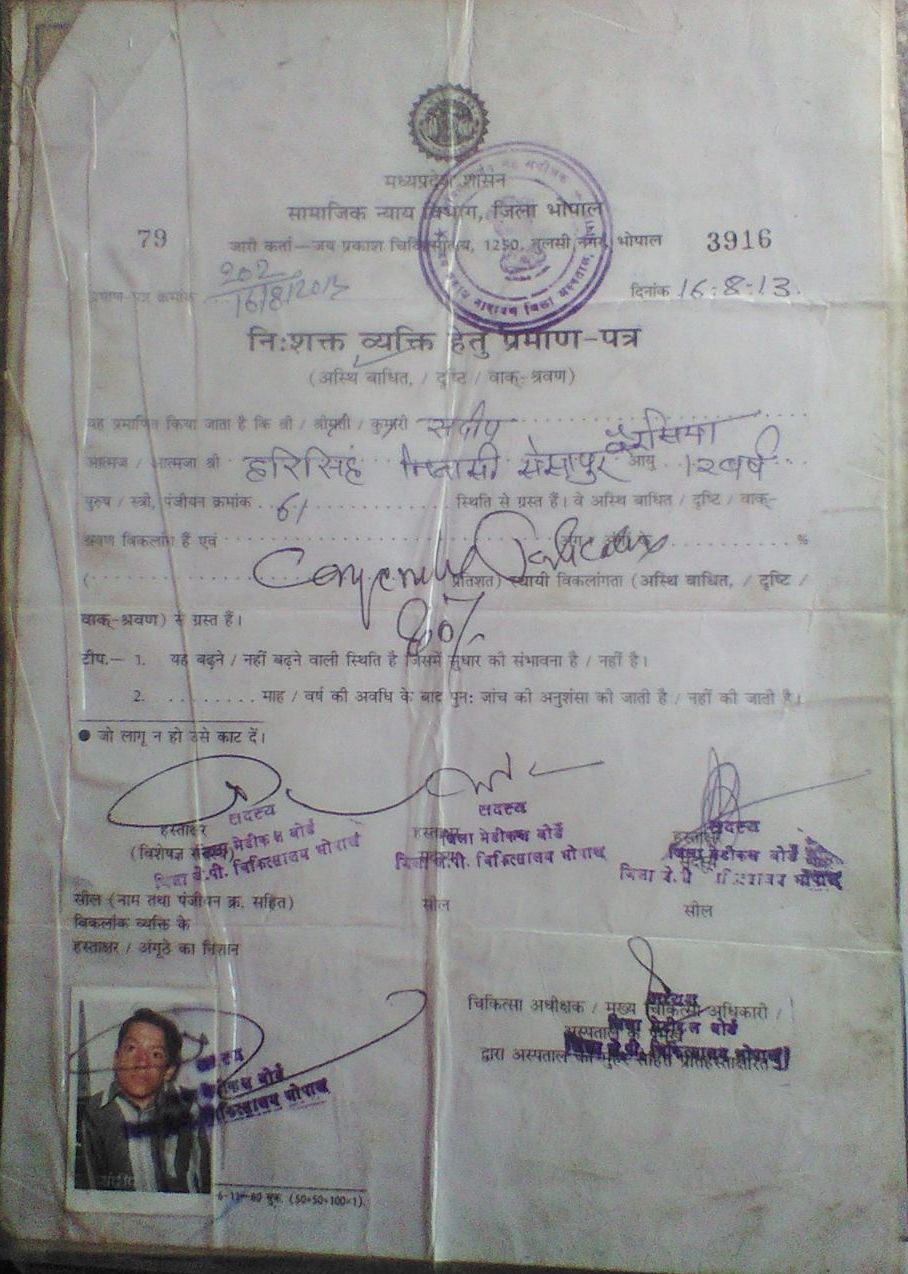 मध्यप्रदेश शासन
सामाजिक न्याय विभाग, जिला भोपाल
79 जारी कर्ता—जय प्रकाश चिकित्सालय, 1250, तुलसी नगर, भोपाल 3916
प्रमाण-पत्र क्रमांक 202/16/8/2013 दिनांक 16-8-13.
नि:शक्त व्यक्ति हेतु प्रमाण-पत्र
(अस्थि बाधित, / दृष्टि / वाक्-श्रवण)
यह प्रमाणित किया जाता है कि श्री / श्रीमती / कुमारी
आत्मज / आत्मजा श्री हरिसिंह निवासी आयु 12 वर्ष
पुरुष / स्त्री, पंजीयन क्रमांक 61 स्थिति से ग्रस्त हैं। वे अस्थि बाधित / दृष्टि / वाक्-
श्रवण विकलांग हैं एवं %
( प्रतिशत) स्थायी विकलांगता (अस्थि बाधित, / दृष्टि /
वाक्-श्रवण) से ग्रस्त हैं।
टीप.— 1. यह बढ़ने / नहीं बढ़ने वाली स्थिति है जिसमें सुधार की संभावना है / नहीं है।
2. ......... माह / वर्ष की अवधि के बाद पुन: जांच की अनुशंसा की जाती है / नहीं की जाती है।
● जो लागू न हो उसे काट दें।
सदस्य सदस्य सदस्य
हस्ताक्षर मेडीकल बोर्ड हस्ताक्षर जिला मेडीकल बोर्ड हस्ताक्षर जिला मेडीकल बोर्ड
(विशेषज्ञ जिला जे.पी. चिकित्सालय भोपाल जिला जे.पी. चिकित्सालय भोपाल जिला जे.पी. चिकित्सालय भोपाल
सील (नाम तथा पंजीयन क्र. सहित) सील सील
विकलांक व्यक्ति के
हस्ताक्षर / अंगूठे का निशान
चिकित्सा अधीक्षक / मुख्य चिकित्सा अधिकारी /
अस्पताल के
द्वारा अस्पताल की मुहर सहित प्रतिहस्ताक्षरित
सदस्य
मेडीकल बोर्ड
चिकित्सालय भोपाल
(50×50×100×1).